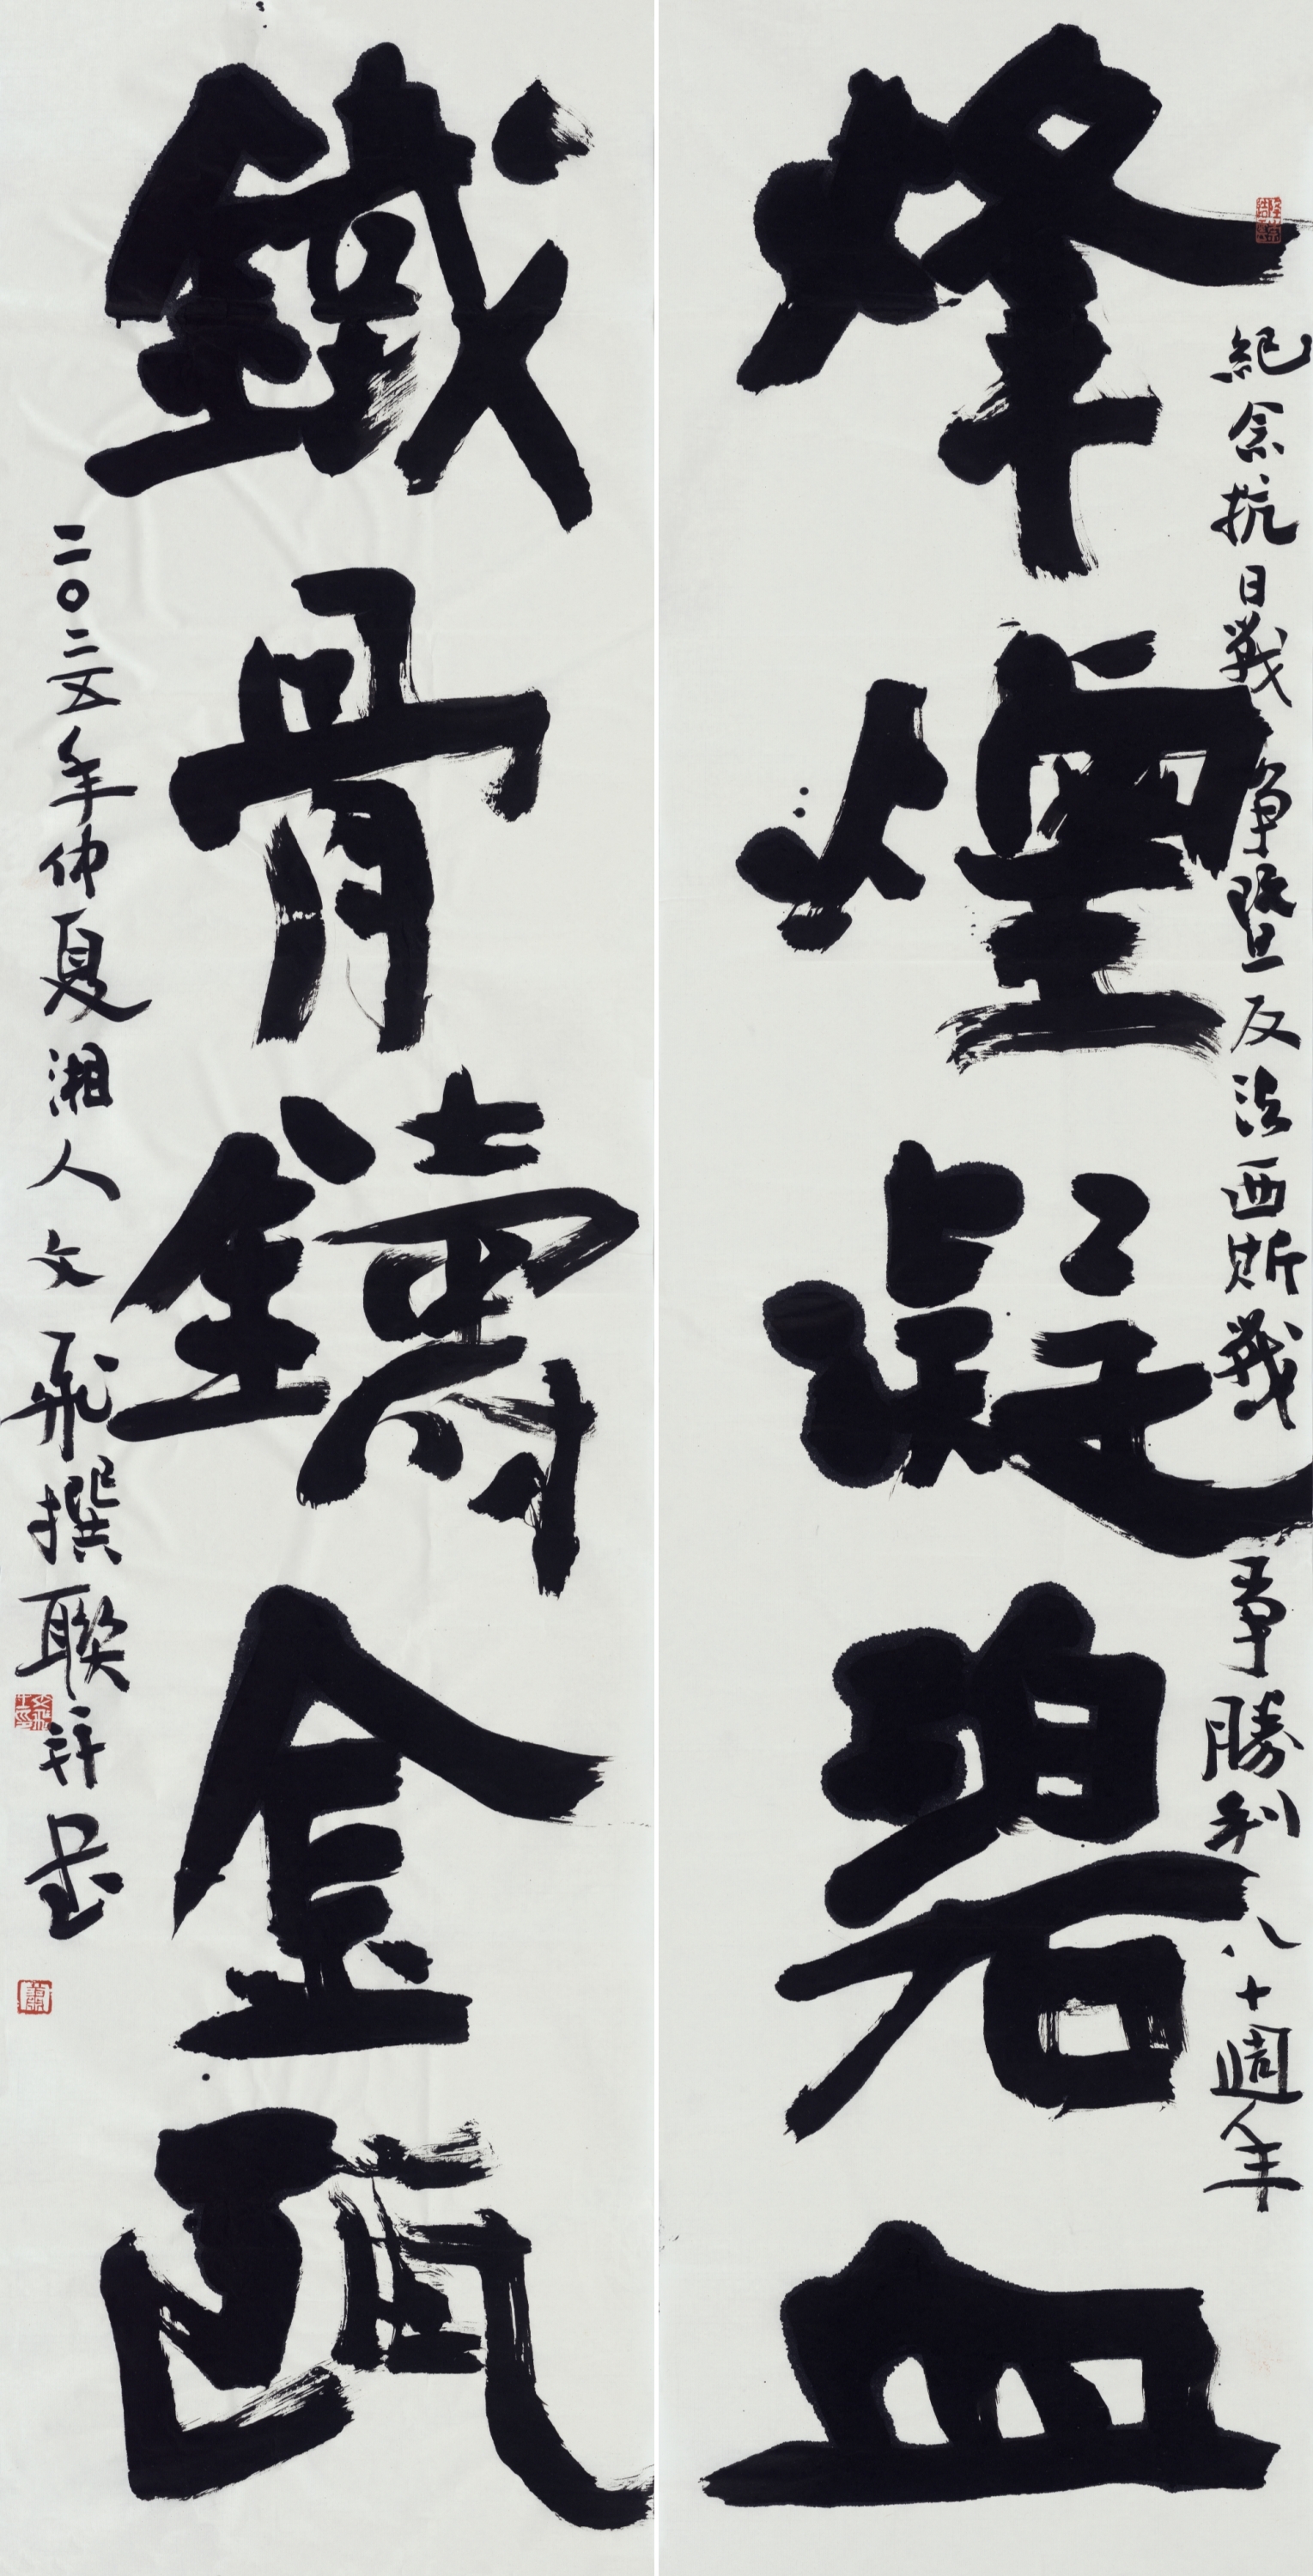 紀念抗日戰爭暨反法西斯戰爭勝利八十週年
烽煙凝碧血
鐵骨鑄金甌
二〇二五年仲夏湘人文飛撰聯并書